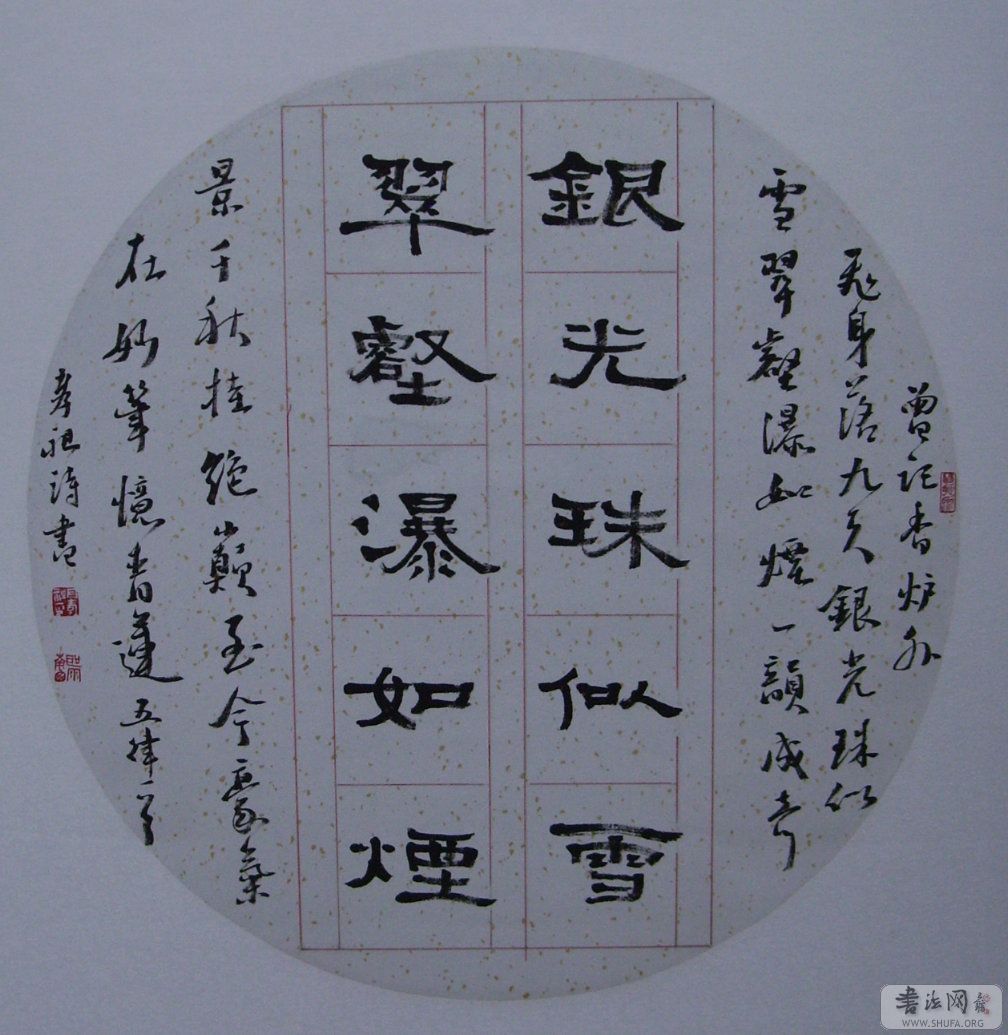 銀光珠似雪
翠壑瀑如煙
曾記香炉外
飛身落九天銀光珠似
雪翠壑瀑如煙一韻成奇
景千秋挂絶巔至今豪氣
在妙筆憶青蓮五律一首
孝祖詩書
書法网
WWW.SHUFA.ORG